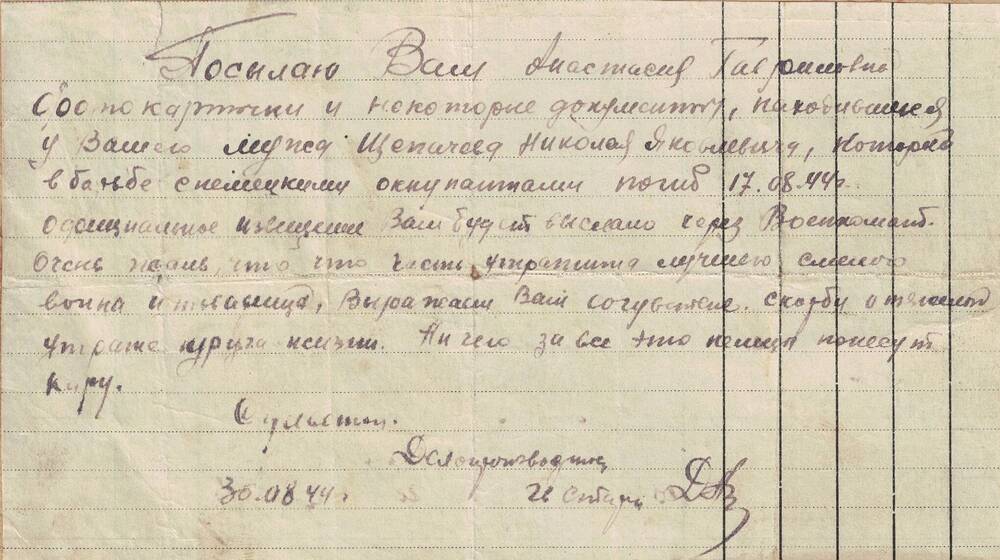 Посылаю Вам Анастасия Гавриловна
фотокарточки и некоторые документы, находившиеся
у Вашего мужа Щепачева Николая Яковлевича, который
в борьбе с немецкими оккупантами погиб 17.08.44г.
официальное извещение Вам будет выслано через Военкомат.
Очень жаль, что что часть утратила лучшего смелого
воина и товарища, Выражаем Вам сочувствие. скорбь о тяжелой
утрате друга жизни. Ничего за все это немцы понесут
кару.
С приветом.
Делопроизводитель
30.08.44г